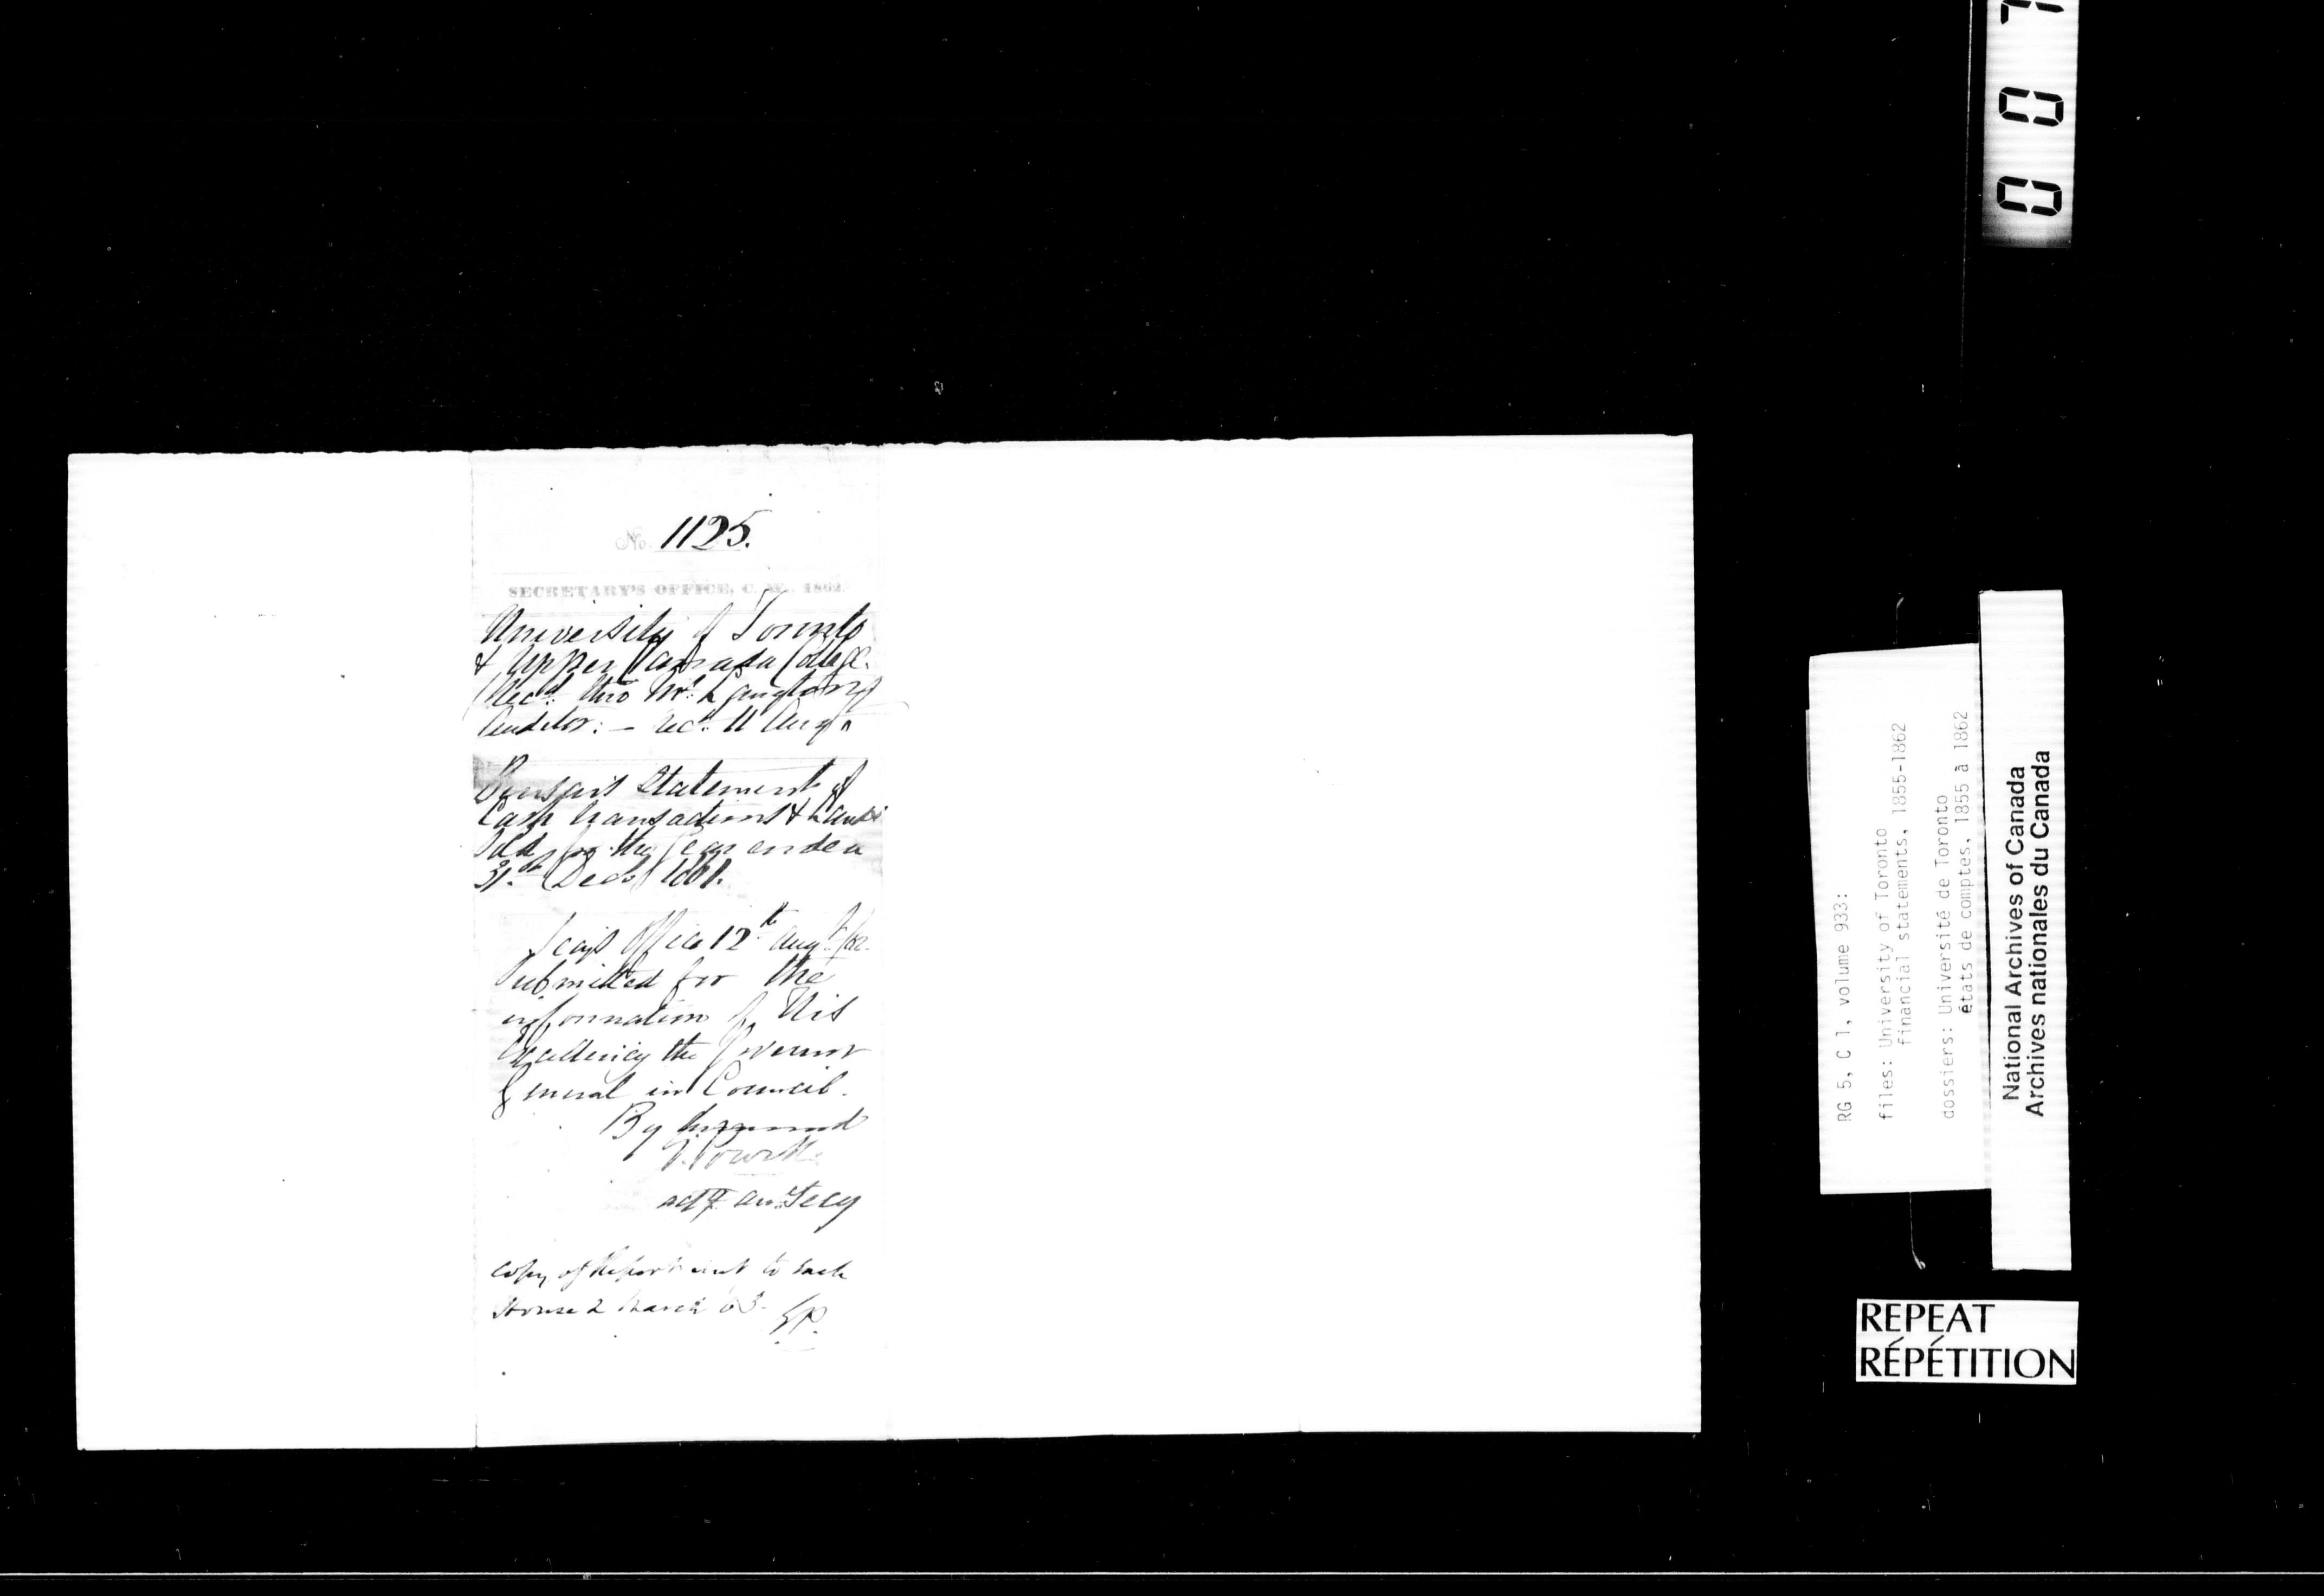 No. 1125.
SECRETARY'S OFFICE, C. W., 1862.
University of Toronto
& Upper Canada College.
(Recd. thro Mr. Langton
Auditor: - recd. 11 Augt.
Bursar's Statement of
Cash transactions & Lands
Sold for the year ended
31st Decr 1861.
Secy's Office 12th Augt /62.
Submitted for the
information of His
Excellency the Governor
General in Council.
By Command
Actg. Secy
Copy of Report sent to each
House 2 March 63. GP.
007
RG 5, C 1, volume 933:
files: University of Toronto
financial statements, 1855-1862
dossiers: Université de Toronto
états de comptes, 1855 à 1862
National Archives of Canada
Archives nationales du Canada
REPEAT
RÉPÉTITION